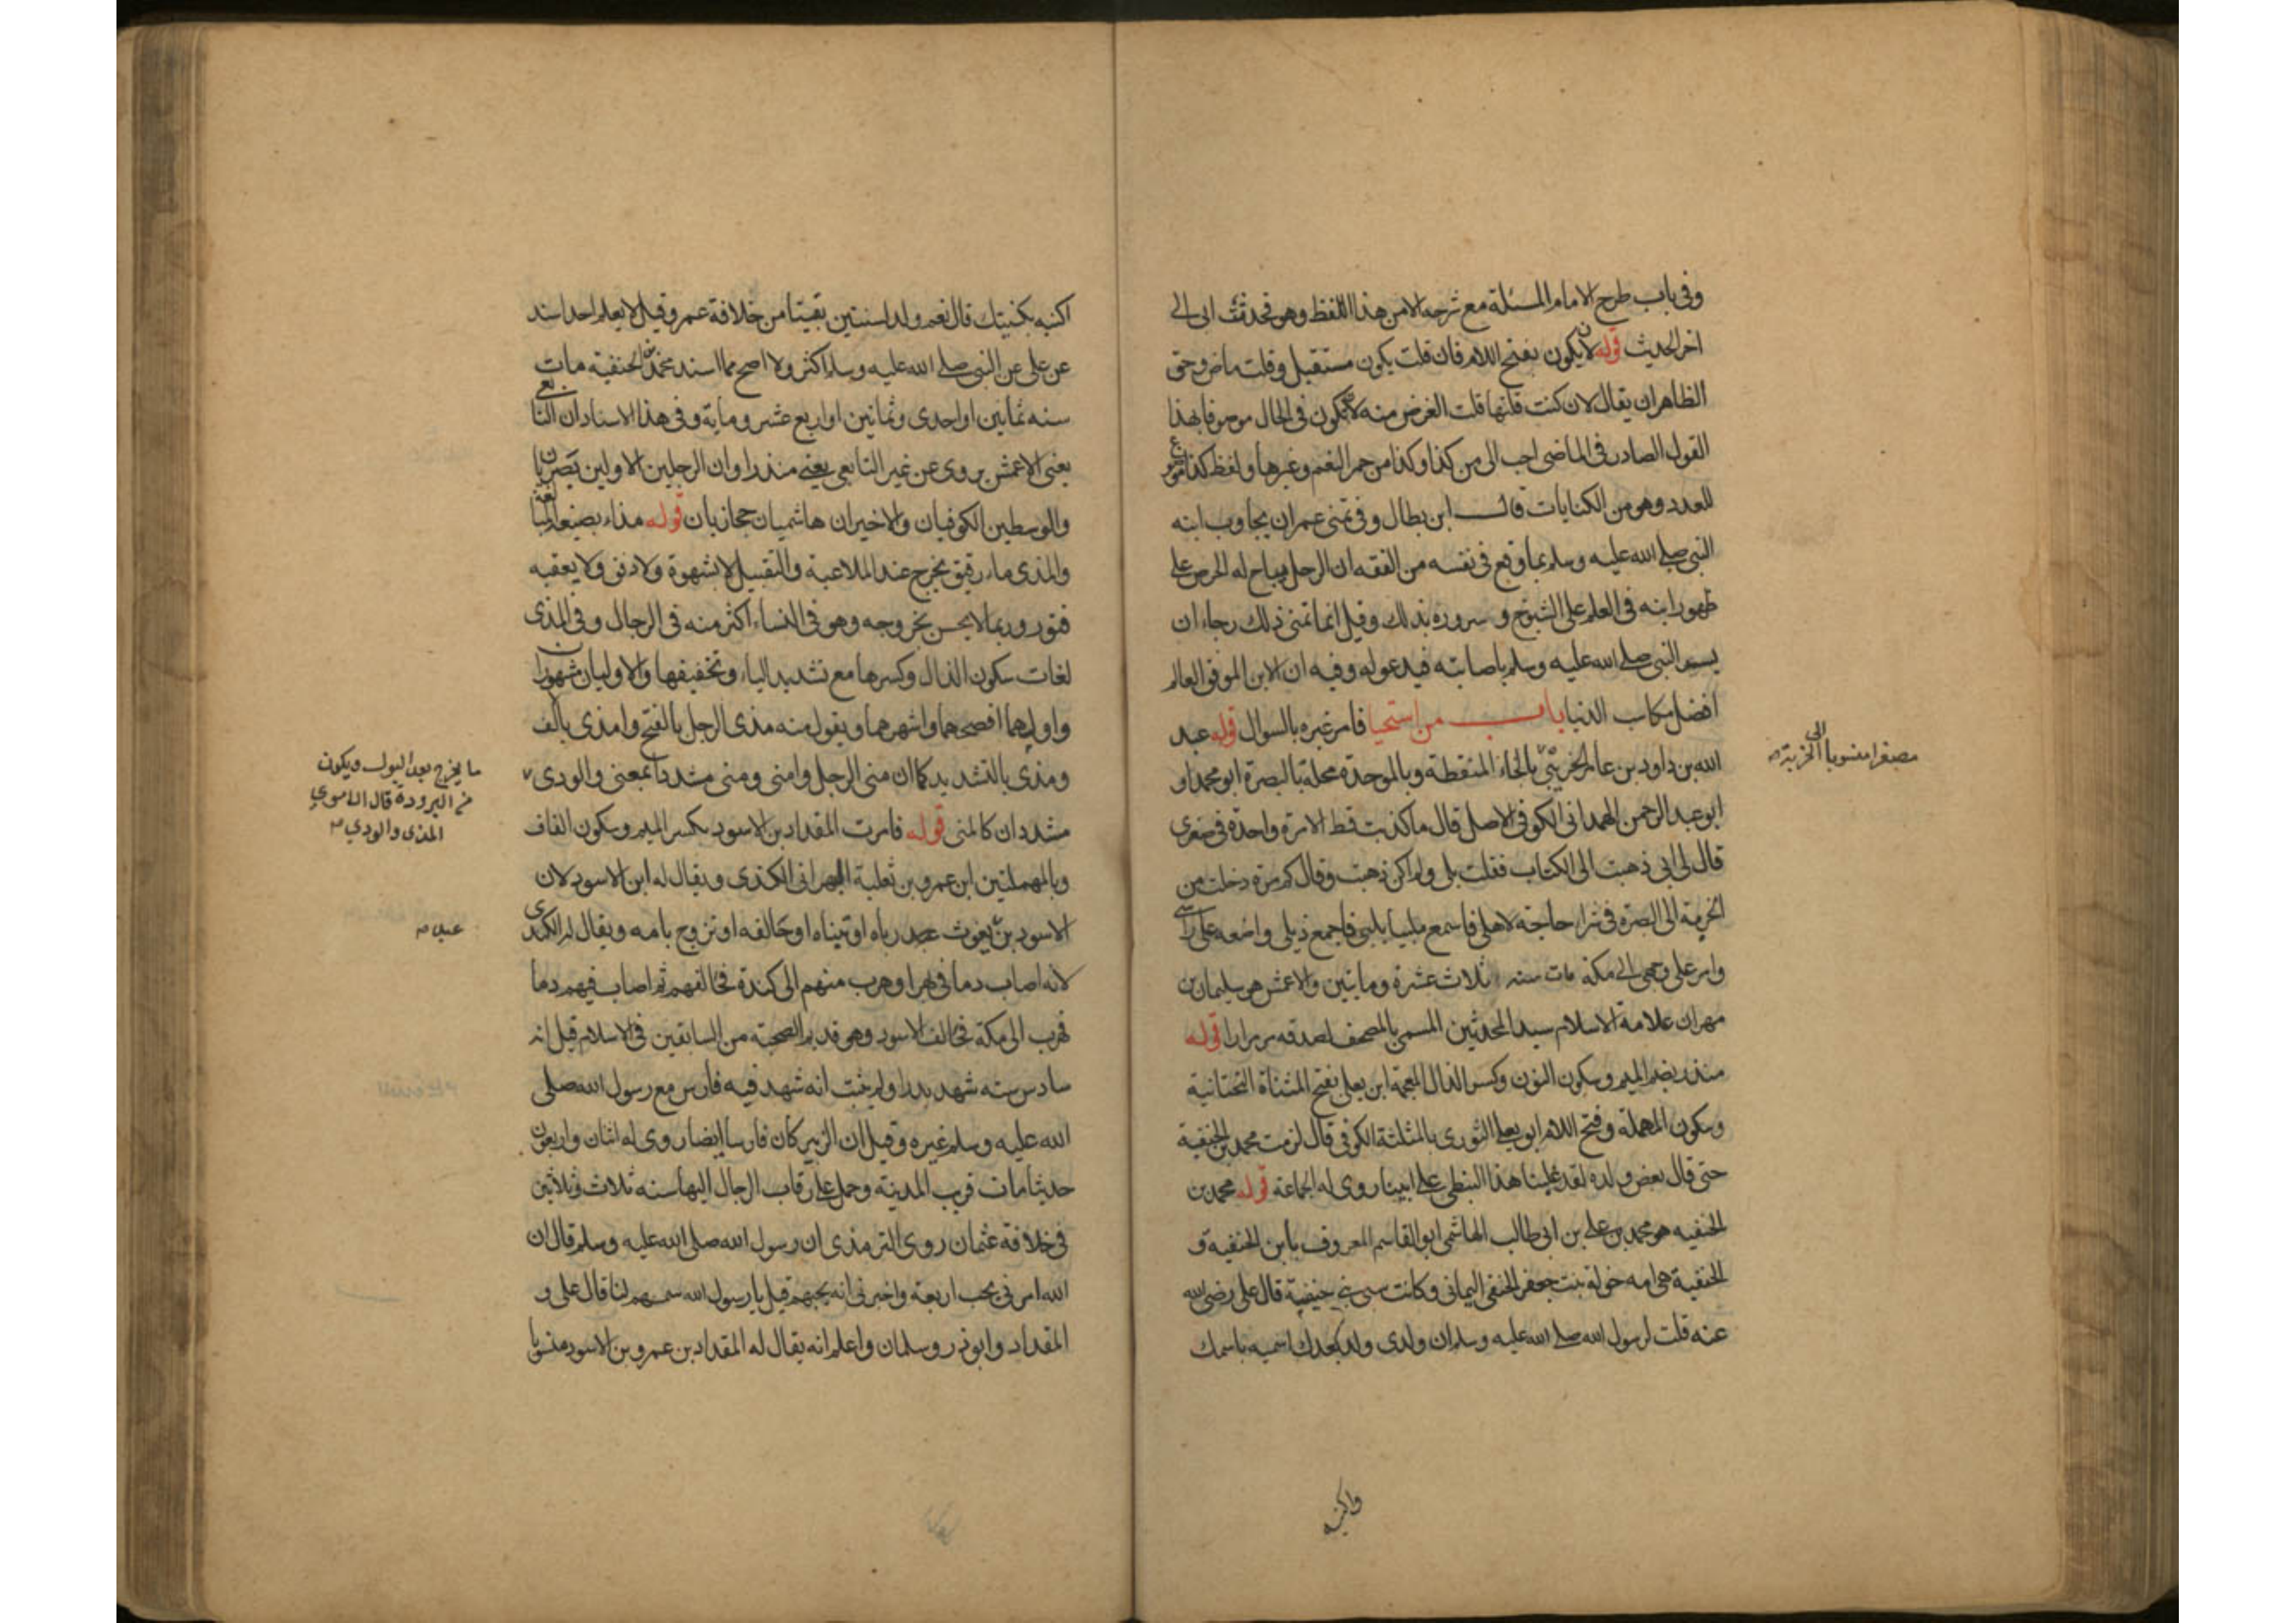 وفى باب طرح الامام المسئلة مع شرحه الامن هذا اللفظ وهو فحدثت ابى الى
اخر الحديث قوله لان يكون بفتح اللام فان قلت يكون مستقبل وقلت ماض وحق
الظاهر ان يقال لان كنت قلتها قلت الغرض منه لان تكون فى الحال موصوفا بهذا
القول الصادر فى الماضى احب الى من كذا وكذا من حمر النعم وغيرها ولفظ كذا موضوع
للعدد وهو من الكنايات قال ابن بطال وفى تمنى عمر ان يجاوب ابنه
النبى صلى الله عليه وسلم بما وقع فى نفسه من الفقه ان الرجل يباح له الحرص على
ظهور ابنه فى العلم على الشيوخ و سروره بذلك وقيل انما تمنى ذلك رجاء ان
يسر النبى صلى الله عليه وسلم باصابته فيدعو له وفيه ان الابن الموفق العالم
افضل مكاسب الدنيا باب من استحيا فامر غيره بالسوال قوله عبد
الله بن داود بن عامر الخريبى بالخاء المنقطة وبالموحدة محلة بالبصرة ابو محمد او
ابو عبد الرحمن الهمدانى الكوفى الاصل قال ما كذبت قط الا مرة واحدة فى صغرى
قال لى ابى ذهبت الى الكتاب فقلت بلى ولم اكن ذهبت وقال كم مرة دخلت من
الخريبة الى البصرة فى شرا حاجة لاهلى فاسمع ملبيا يلبى فاجمع ذيلى واضعه على راسى
وامر على وجهى الى مكة مات سنه ثلاث عشرة ومايتين والاعمش هو سليمان بن
مهران علامة الاسلام سيد المحدثين المسمى بالمصحف لصدقه مر مرارا قوله
منذر بضم الميم وسكون النون وكسر الذال المعجمة ابن يعلى بفتح المثناة التحتانية
وسكون المهملة وفتح اللام ابو يعلى الثورى بالمثلثة الكوفى قال لزمت محمد بن الحنفية
حتى قال بعض ولده لقد غلبنا هذا النبطى على ابينا روى له الجماعة قوله محمد بن
الحنفيه هو محمد بن على بن ابى طالب الهاشمى ابو القاسم المعروف بابن الحنفية و
الحنفية هى امه خولة بنت جعفر الحنفى اليمانى وكانت من سبى بنى حنيفة قال على رضى الله
عنه قلت لرسول الله صلى الله عليه وسلم ان ولدى ولد بعدك اسميه باسمك
مصغرا منسوبا الى الخريبة
واكنيه
اكنيه بكنيتك قال نعم ولد لسنتين بقيتا من خلافة عمر وقيل لا يعلم احد اسند
عن على عن النبى صلى الله عليه وسلم اكثر ولا اصح مما اسند محمد بن الحنفية مات
سنه ثمانين او احدى وثمانين او اربع عشر ومايه وفى هذا الاسناد ان التابعى
يعنى الاعمش يروى عن غير التابعى يعنى منذرا وان الرجلين الاولين بصريان
والوسطين الكوفيان والاخيران هاشميان حجازيان قوله مذاء بصيغة المبالغة
والمذى ماء رقيق يخرج عند الملاعبة والتقبيل لا بشهوة ولا دفق ولا يعقبه
فتور وربما لا يحس بخروجه وهو فى النساء اكثر منه فى الرجال وفى المذى
لغات سكون الذال وكسرها مع تشديد الياء وتخفيفها والاوليان مشهوران
واولهما افصحهما واشهرهما ويقول منه مذى الرجل بالفتح وامذى بالف
ومذى بالتشديد كما ان منى الرجل وامنى ومنى مشددا بمعنى والودى
مشددان كالمنى قوله فامرت المقداد بن الاسود بكسر الميم وسكون القاف
وبالمهملتين ابن عمرو بن ثعلبة البهرانى الكندى ويقال له ابن الاسود لان
الاسود بن يغوث رباه او تبناه او حالفه او تزوج بامه ويقال له الكندى
لانه اصاب دما فى بهرا وهرب منهم الى كندة فحالفهم ثم اصاب فيهم دما
فهرب الى مكة فحالف الاسود وهو قديم الصحبة من السابقين فى الاسلام قيل انه
سادس سته شهد بدرا ولم يثبت انه شهد فيه فارس مع رسول الله صلى
الله عليه وسلم غيره وقيل ان الزبير كان فارسا ايضا روى له اثنان واربعون
حديثا مات قرب المدينة وحمل على رقاب الرجال اليها سنه ثلاث وثلاثين
فى خلافة عثمان روى الترمذى ان رسول الله صلى الله عليه وسلم قال ان
الله امرنى بحب اربعة واخبرنى انه يحبهم قيل يا رسول الله سمهم لنا قال على و
المقداد وابو ذر وسلمان واعلم انه يقال له المقداد بن عمرو بن الاسود منسوبا
ما يخرج بعد البول ويكون
من البرودة قال الاموي
المذى والودي
عبد